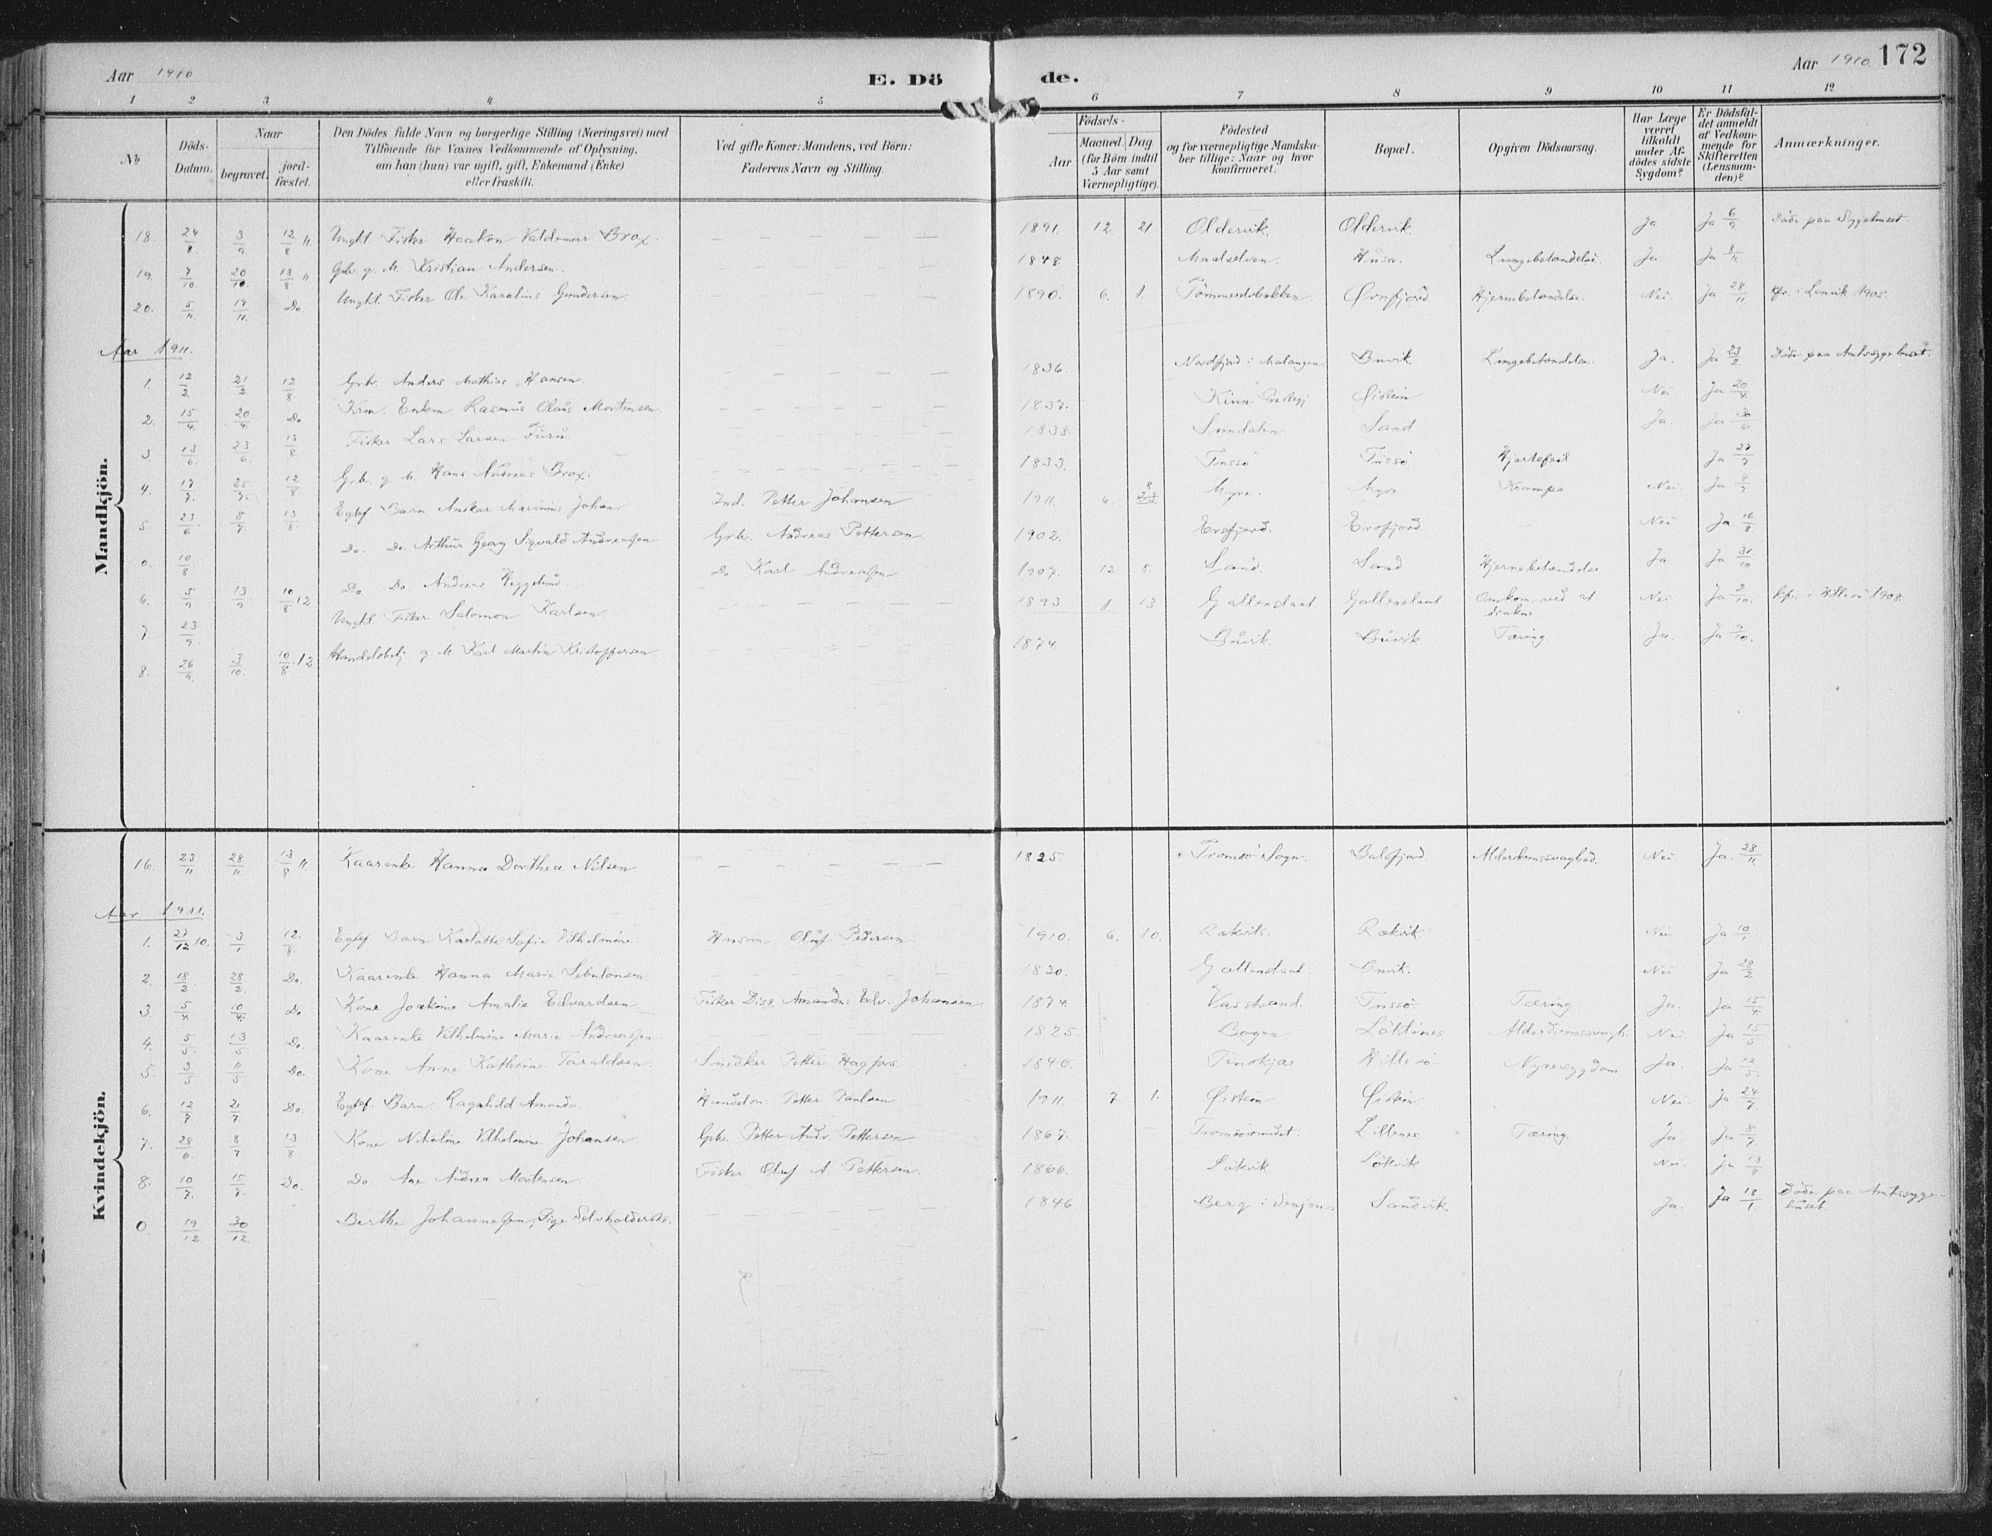 Aar 1910
E. Dö
de.
Aar 1910. 172
1 2 3 4 5 6 7 8 9 10 11 12
No
Döds-Datum.
Naar
begravet.
jord-fæstet.
Den Dödes fulde Navn og borgerlige Stilling (Næringsvei) med
Tilföiende för Voxnes Vedkommende af Oplysning,
om han (hun) var ugift, gift, Enkemand (Enke)
eller fraskilt.
Ved gifte Koner: Mandens, ved Börn:
Faderens Navn og Stilling.
Födsels-
Aar
Maaned. Dag
(for Börn indtil
5 Aar samt
Værnepligtige).
Födested
og for værnepligtige Mandska-
ber tillige: Naar og hvor
konfirmeret.
Bopæl.
Opgiven Dödsaarsag.
Har Læge
været
tilkaldt
under Af-
dödes sidste
Sygdom?
Er Dödsfal-
det anmeldt
af Vedkom-
mende for
Skifteretten
(Lensman-
den)?
Anmærkninger.
Mandkjön.
18. 24/8 3/9 12/8 11 Ungkl. Fisker Haakon Valdemar Brox. 1891. 12. 21 Oldervik. Oldervik. Ja. Ja 6/9 Döde paa Sygehuset.
19. 7/10 20/10. 13/8 11 Grb. g. M. Kristian Andersen. 1848. Maalselven. Husa. Lungebetændelse. Ja. Ja 8/11
20. 5/11 17/11. Do. Ungkl. Fisker Ole Karelius Gundersen 1890. 6. 1. Tömmersbakken. Hjernebetændelse. Nei. Ja 28/11. Kfr. i Lenvik 1905.
Aar 1911.
1. 12/2 21/2 12/8 Grb. Anders Mathias Hansen 1836. Nordfjord i Malangen. Buvik Lungebetændelse. Ja. Ja 23/2 Döde paa Amtssygehuset.
2. 15/4. 20/4. Do Krm. Enkem. Rasmus Olaus Mortensen. 1837. Kinn Præstegj Öistein Nei. Ja 20/4.
3 13/6. 23/6. 13/8 Fisker Lars Larsen Furu. 1838. Sundalen Sand Ja. Ja
4. 17/7. 25/7. 12/8 Grb. g. M. Hans Andreas Brox. 1833. Tussö Tussö Hjertefeil Ja 27/7
5. 23/6 8/7. 13/8 Egtef. Barn Anskar Marinius Johan. Ind. Petter Johansen 1911. 6. 8 Myre. Myre Krampe Nei. Ja 8/7
0. 10/8 Do. Do. Arthur Georg Sigvald Andreassen Grb. Andreas Pettersen 1902. Ersfjord. Ersfjord. Nei Ja 16/8
6. 5/9. 13/9. 10/8 12 Do. Do. Andreas Heggelund. Do Karl Andreassen 1907. 12. 8. Sand. Sand Hjernebetændelse Ja Ja
7 23/9. Ungkl. Fisker Salomon Karlsen. 1893. 1. 13 Gallenslaat Gallenslaat Omkom ved at drukne Nei. Ja 2/10. Kfr. i Hillesö 1908.
8. 26/9. 3/10. 10/8. 12 Handelsbetj. g. M. Karl Martin Kristoffersen. 1874. Buvik. Buvik Tæring. Ja. Ja
Kvindekjön.
16. 23/11 28/11. 13/8 11 Kaarenke Hanna Dorthea Nilsen 1825. Tromsö Sogn. Balsfjord. Alderdomssvaghed. Nei Ja. 28/11.
Aar 1911.
1. 27/12 10. 3/1 12./8. Egtef. Barn Karlotte Sofie Vilhelmine. Husm. Oluf Pedersen. 1910. 6. 10. Rækvik. Rækvik. Nei Ja 10/1
2. 18/2 28/2. Do. Kaarenke Hanna Marie Sebulonsen 1830. Gallenslaat. Buvik. Nei Ja 28/2
3. 5/4 10/4. Do. Kone Joakine Amalie Edvardsen. Fisker Diss. Amandus Edv. Johansen 1874. Vasstrand. Tussö Tæring. Ja. Ja 15/4
4. 5/5. 13/5 Do. Kaarenke Vilhelmine Marie Andreassen. 1825. Bogen Löktines Alderdomssvagh. Nei Ja 15/5
5 3/5 11/5 Do. Kone Anne Kathrine Taraldsen. Snedker Petter 1846. Tinskjær Hillesö Nyresygdom Ja. Ja 12/5.
6. 12/7 21/7 Do. Egtef. Barn. Ragnhild Amanda. Handelsm Petter Paulsen 1911. 7. 1. Öistein Öistein Nei. Ja 24/7
7. 28/6. 8/7 13/8 Kone Nikoline Vilhelmine Johansen Grb. Petter Andr. Pettersen 1867. Tromsösundet. Lillenes. Tæring. Ja. Ja 8/7.
8. 10/7. 15/7. Do. Do. Ane Andrea Mortensen. Fisker Oluf A. Pettersen. 1866. Lökvik Lökvik Nei. Ja 13/8
0 19/12. 30/12. Berthe Johannessen, Pige Selvholderske. 1846 Berg i Senjen. Sandvik. Ja. Ja 18/1 Döde paa Amtssyge-
huset.